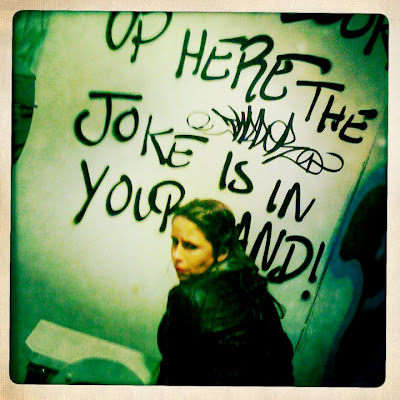 UP HERE THE
JOKE IS IN
YOUR AND!